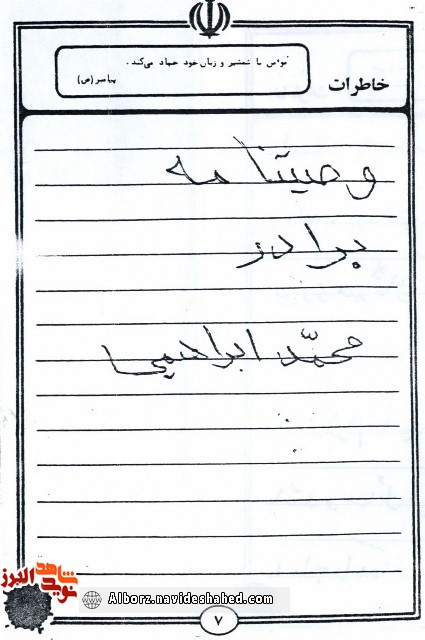 مؤمن با شمشیر و زبان خود جهاد می‌کند.
پیامبر (ص)
خاطرات
وصیتنامه
برادر
محمّد ابراهیمی
نوید شاهد البرز
Alborz.navideshahed.com
۷